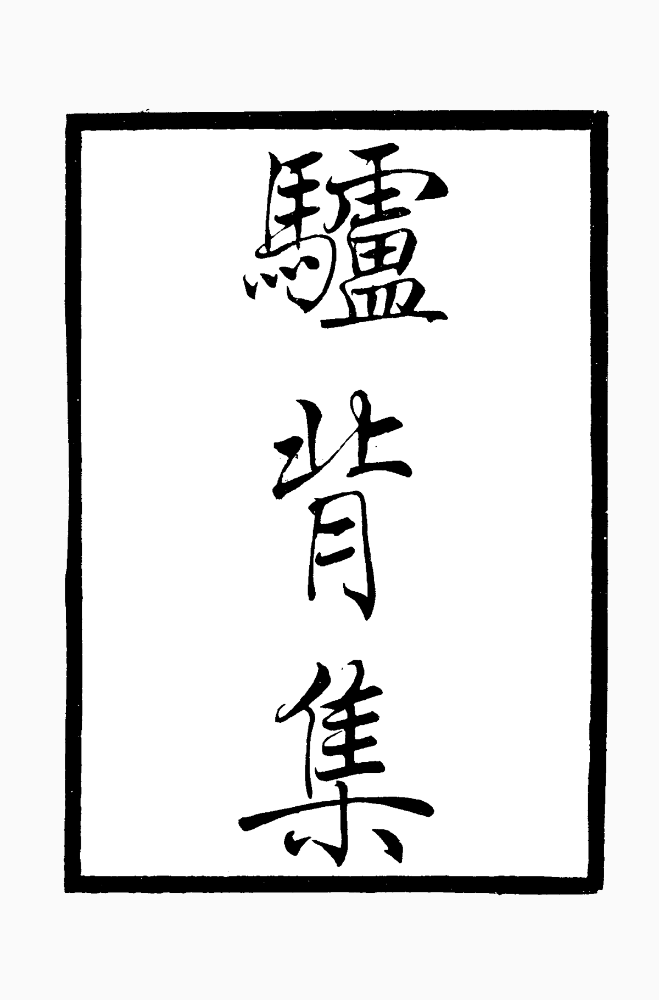 驢背集